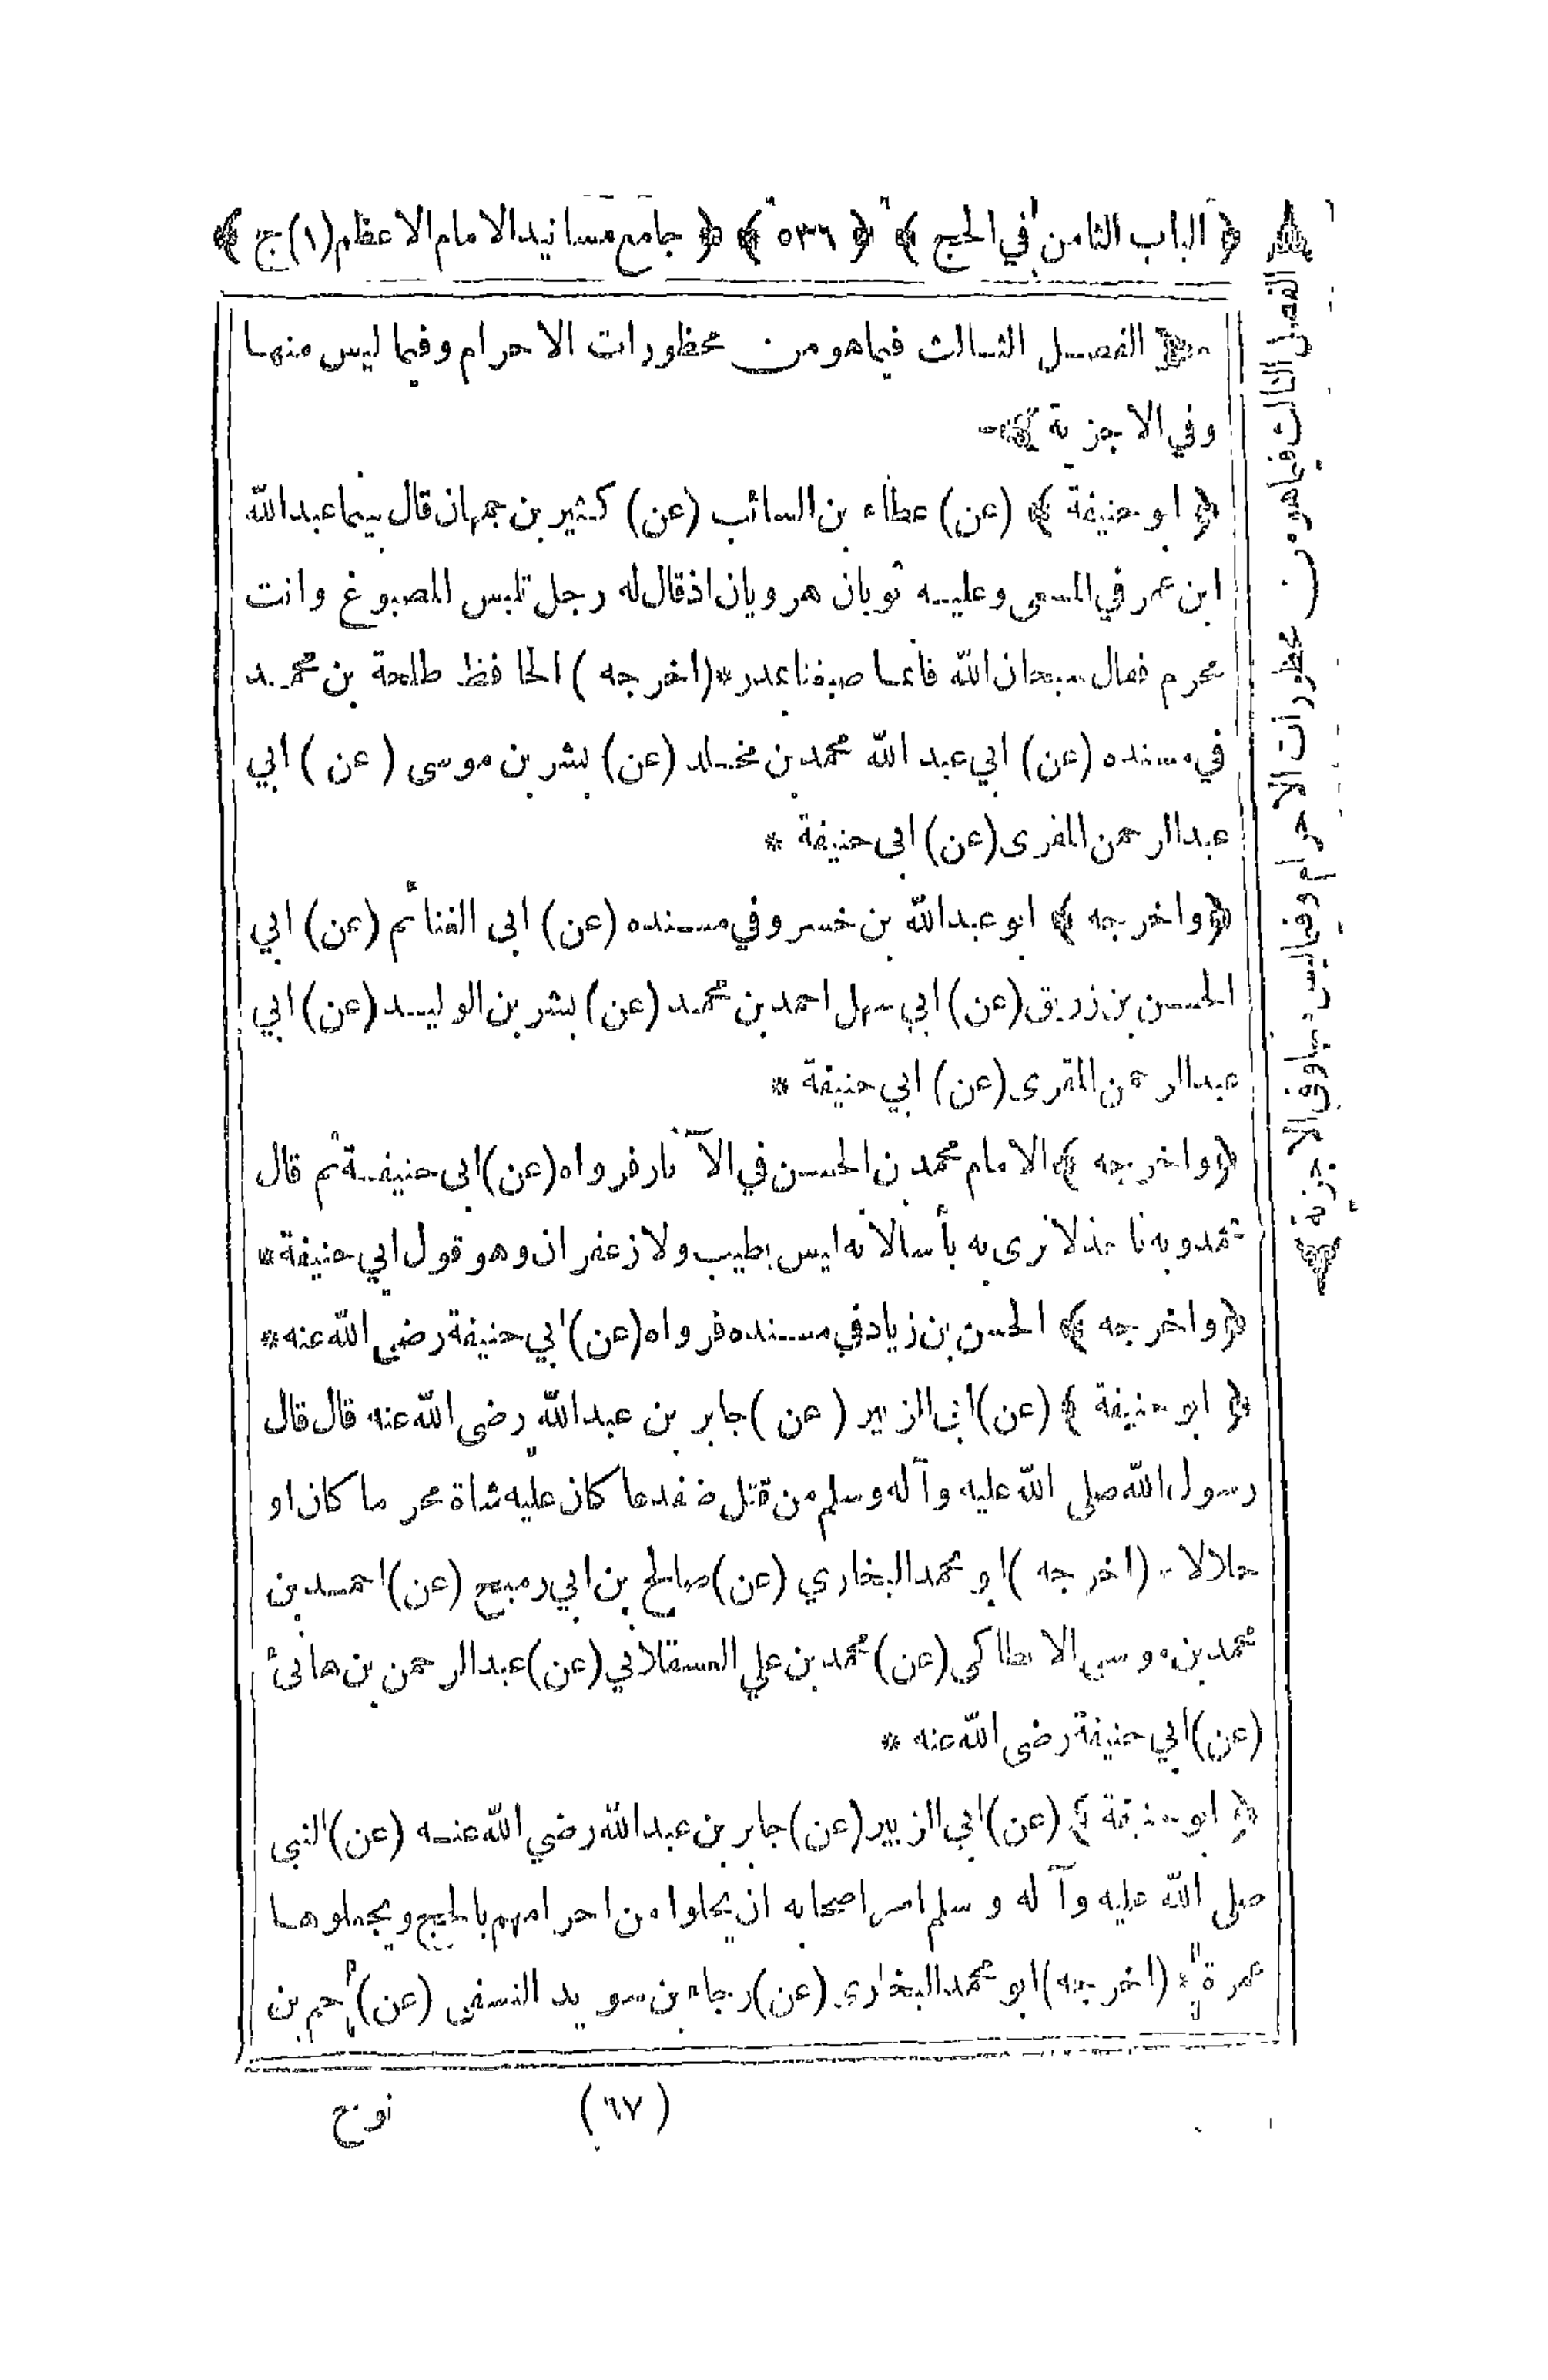 ﴿ الباب الثامن في الحج ﴾ ﴿ ٥٣٦ ﴾ ﴿ جامع مسانيد الامام الاعظم (١) ج ﴾
﴿ الفصل الثالث فيما هو من محظورات الاحرام وفيما ليس منها
وفي الاجزية ﴾
﴿ ابو حنيفة ﴾ (عن) عطاء بن السائب (عن) كثير بن جمهان قال بينما عبد الله
ابن عمر في المسعى وعليه ثوبان هرويان اذ قال له رجل تلبس المصبوغ وانت
محرم فقال سبحان الله فانما صبغنا بمدر *(اخرجه) الحافظ طلحة بن محمد
في مسنده (عن) ابي عبد الله محمد بن مخلد (عن) بشر بن موسى (عن) ابي
عبد الرحمن المقرى (عن) ابى حنيفة *
﴿واخرجه﴾ ابو عبد الله بن خسرو في مسنده (عن) ابى الغنائم (عن) ابي
الحسن بن زريق (عن) ابي سهل احمد بن محمد (عن) بشر بن الوليد (عن) ابي
عبد الرحمن المقرى (عن) ابي حنيفة *
﴿واخرجه﴾ الامام محمد بن الحسن في الآثار فرواه (عن) ابى حنيفة ثم قال
محمد وبه ناخذ لا نرى به بأسا لانه ليس بطيب ولا زعفران وهو قول ابي حنيفة *
﴿واخرجه﴾ الحسن بن زياد في مسنده فرواه (عن) ابي حنيفة رضي الله عنه *
﴿ ابو حنيفة ﴾ (عن) ابي الزبير (عن) جابر بن عبد الله رضى الله عنه قال قال
رسول الله صلى الله عليه وآله وسلم من قتل ضفدعا كان عليه شاة محرما كان او
حلالا * (اخرجه) ابو محمد البخاري (عن) صالح بن ابي رميح (عن) احمد بن
محمد بن موسى الانطاكى (عن) محمد بن علي العسقلاني (عن) عبد الرحمن بن هانئ
(عن) ابي حنيفة رضى الله عنه *
﴿ ابو حنيفة ﴾ (عن) ابي الزبير (عن) جابر بن عبد الله رضي الله عنه (عن) النبى
صلى الله عليه وآله وسلم امر اصحابه ان يحلوا من احرامهم بالحج ويجعلوها
عمرة * (اخرجه) ابو محمد البخارى (عن) رجاء بن سويد النسفى (عن) حم بن
(٦٧) نوح
الفصل الثالث فيما هو من محظورات الاحرام وفيما ليس منها وفي الاجزية